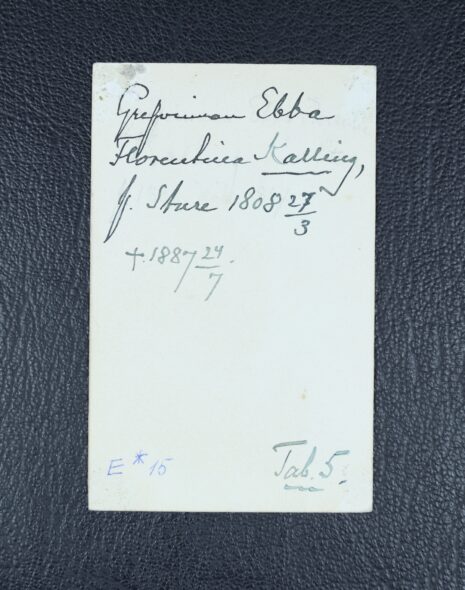 Grefvinnan Ebba
Florentina Kalling,
f. Sture 1808 27/3
+ 1887 24/7.
E * 15
Tab. 5.